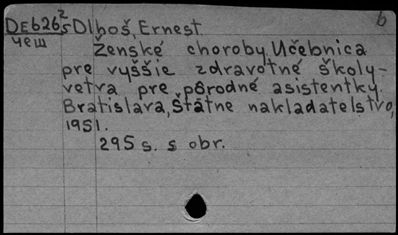 b
DE626²5 Dlhoš, Ernest
чеш
Ženské choroby, Učebnica
pre vyššie zdravotné školy-
vetva pre pôrodné asistentky.
Bratislava, Štátne nakladatelstvo,
1951.
295 s. s obr.